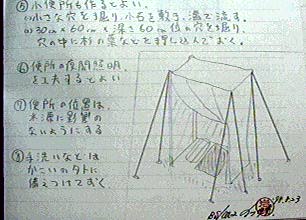 ⑤小便所も作るとよい。
(イ)小さな穴を掘り、小石を敷き、溝で流す。
(ロ)30cm×60cm×深さ60cm位の穴を掘り、
穴の中に杉の葉などを押し込んでおく。
⑥便所の夜間照明
を工夫するとよい
⑦便所の位置は、
水源に影響の
ないようにする
⑧手洗いなどは
かこいの外に
備えつけておく